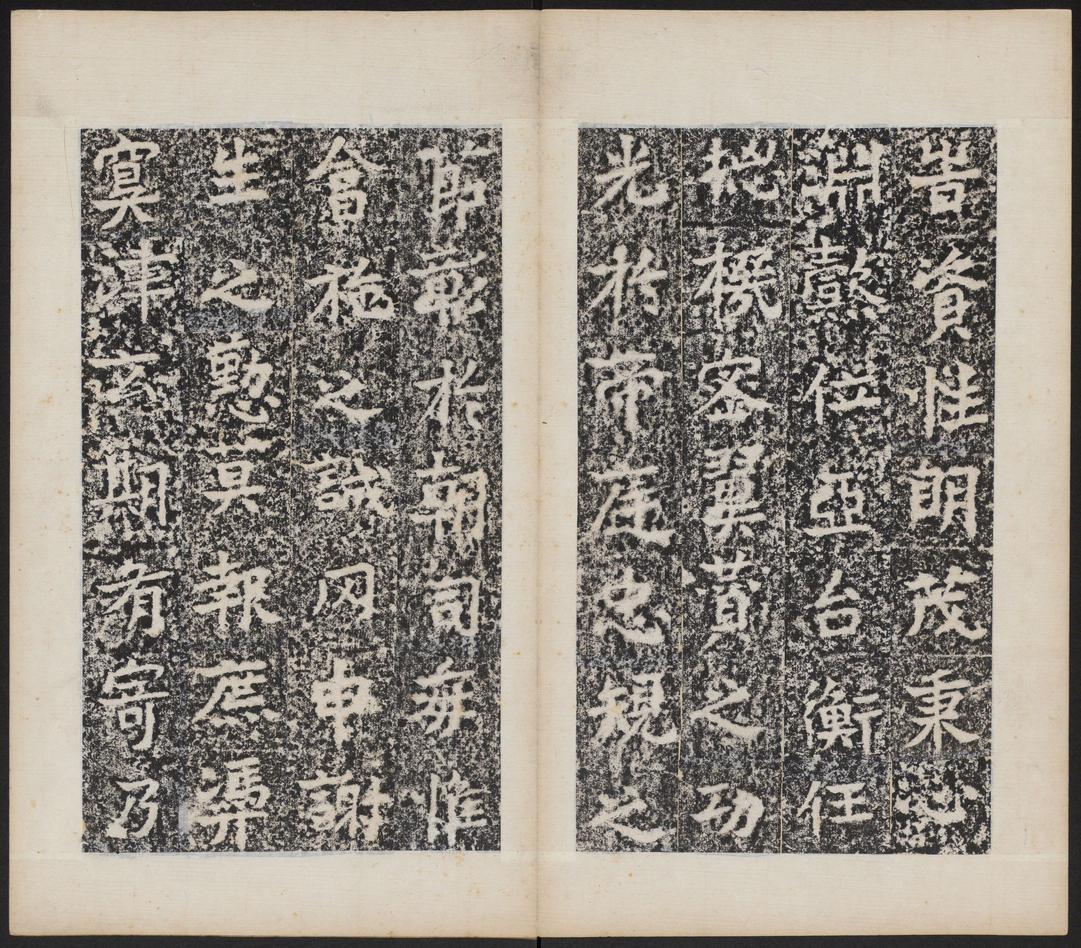 資性明茂秉心
淵懿位亞台衡任
揔機密翼賛之功
光於帝庭忠規之
節彰於朝司每惟
會施之誠罔申謝
生之懃莫報庶憑
冥津玄期有寄乃